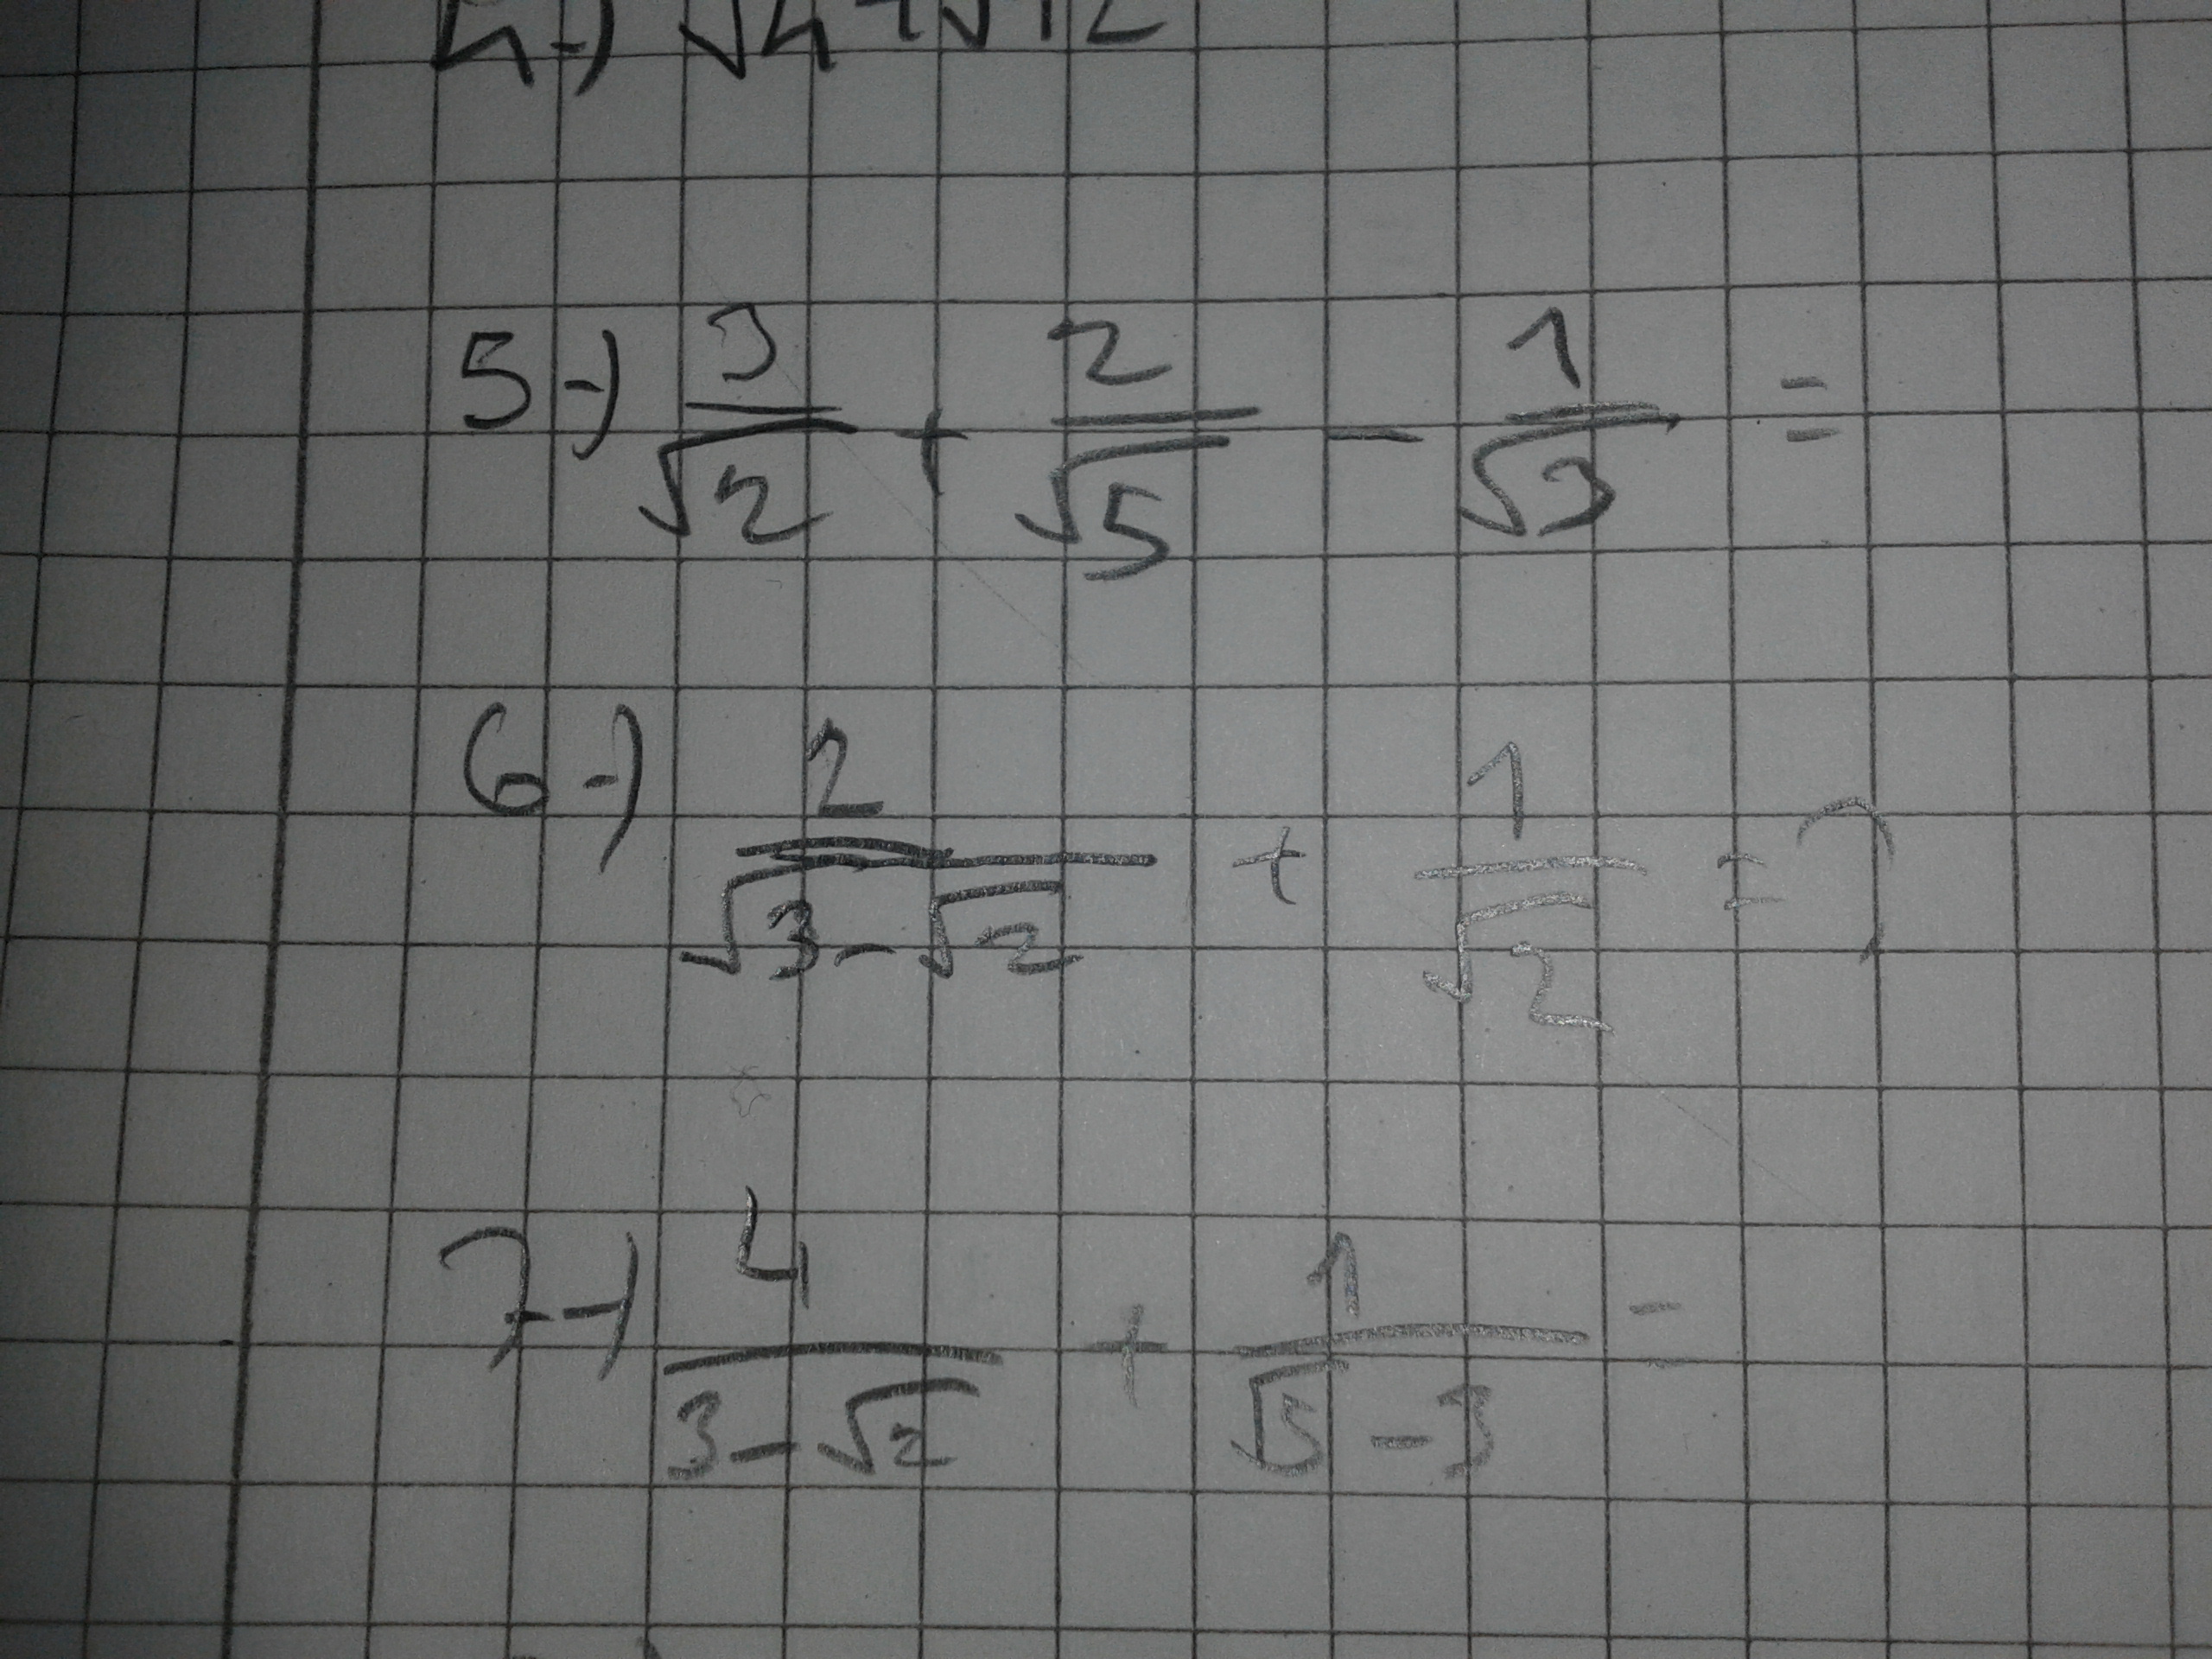 4-) √4+√12
5-) 3/√2 + 2/√5 - 1/√3 =
6-) 2/(√3-√2) + 1/√2 = ?
7-) 4/(3-√2) + 1/(√5-3) =